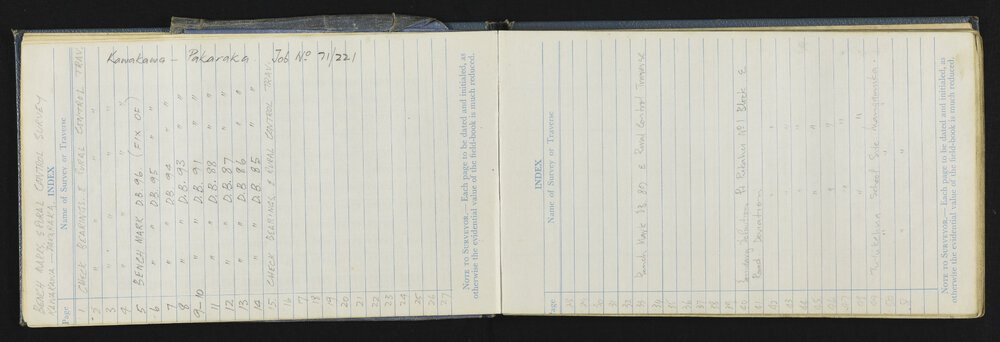 Kawakawa – Pakaraka. Job No 71/221
BENCH MARKS & RURAL CONTROL SURVEY
KAWAKAWA – PAKARAKA
INDEX
Page Name of Survey or Traverse
1 CHECK BEARINGS & RURAL CONTROL TRAV.
2 " " " "
3 " " " "
4 " " " "
5 BENCH MARK D.B. 96 (FIX OF)
6 " " D.B. 95 " "
7 " " D.B. 94 " "
8 " " D.B. 93 " "
9–10 " " D.B. 91 " "
11 " " D.B. 88 " "
12 " " D.B. 87 " "
13 " " D.B. 86 " "
14 " " D.B. 85 " "
15 CHECK BEARINGS & RURAL CONTROL TRAV.
16
17
18
19
20
21
22
23
24
25
26
27
NOTE TO SURVEYOR.—Each page to be dated and initialed, as
otherwise the evidential value of the field-book is much reduced.
INDEX
Page Name of Survey or Traverse
28
29
30
31
32
33 Bench Mark & Rural Control Traverse
34
35
36
37
38
39
40 Boundary Definition Pt Block
41 Road Deviation
School Site
NOTE TO SURVEYOR.—Each page to be dated and initialed, as
otherwise the evidential value of the field-book is much reduced.